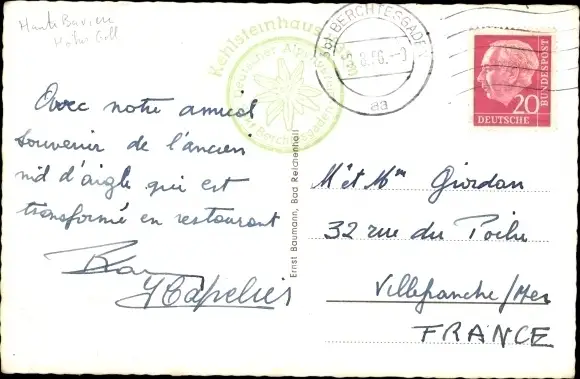 Haute Bavière
Kehlsteinhaus
Deutscher Alpenverein
Berchtesgaden
BERCHTESGADEN
aa
20
DEUTSCHE
BUNDESPOST
Avec notre amical
souvenir de l'ancien
nid d'aigle qui est
transformé en restaurant
Ernst Baumann, Bad Reichenhall
Mr et Mme Giordan
32 rue du Poilu
Villefranche/Mer
FRANCE